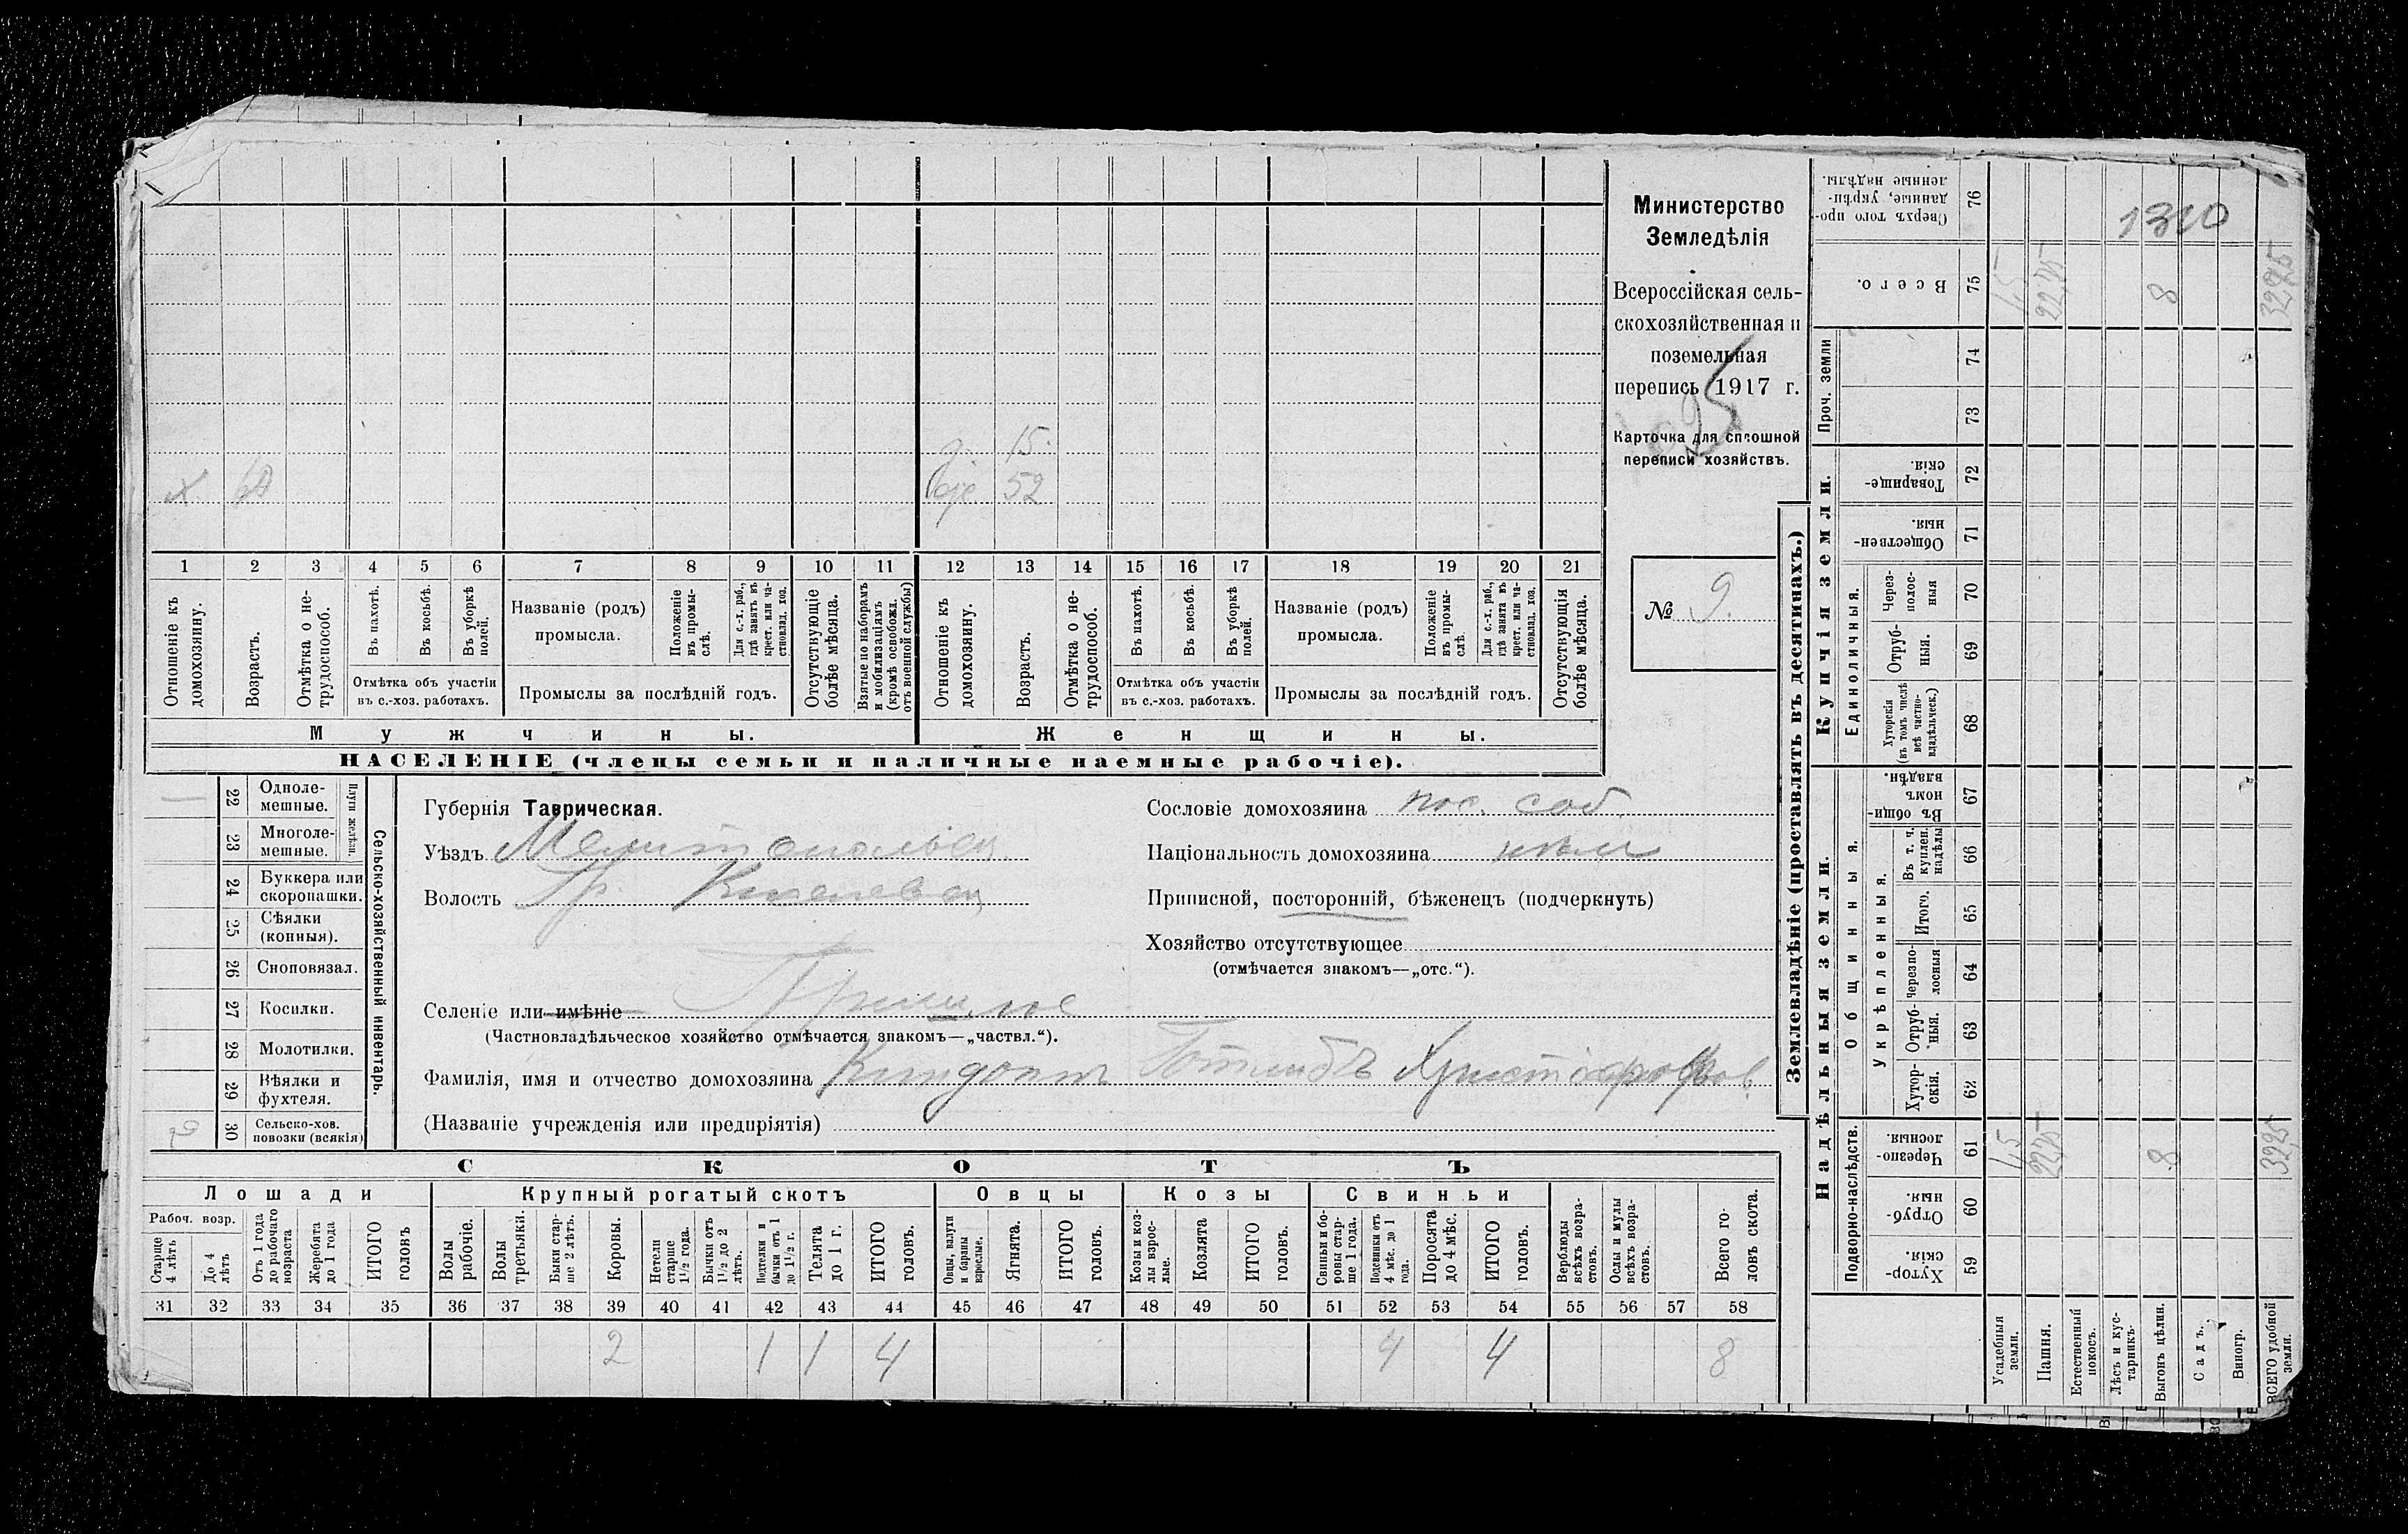 Министерство
Земледѣлія
Всероссійская сель-
скохозяйственная и
поземельная
перепись 1917 г.
Карточка для сплошной
переписи хозяйствъ.
№ 9.
1310
х.
15.
52
1 2 3 4 5 6 7 8 9 10 11 12 13 14 15 16 17 18 19 20 21
Отношеніе къ домохозяину.
Возрастъ.
Отмѣтка о не-трудоспособ.
Въ пахотѣ.
Въ косьбѣ.
Въ уборкѣ полей.
Отмѣтка объ участіи
въ с.-хоз. работахъ.
Названіе (родъ)
промысла.
Положеніе въ промы-слѣ.
Для с.-х. раб., гдѣ занятъ въ крест. или ча-стновлад. хоз.
Промыслы за послѣдній годъ.
Отсутствующіе болѣе мѣсяца.
Взятые по наборамъ и мобилизаціямъ (кромѣ освобожд. отъ военной службы)
Отношеніе къ домохозяину.
Возрастъ.
Отмѣтка о не-трудоспособ.
Въ пахотѣ.
Въ косьбѣ.
Въ уборкѣ полей.
Отмѣтка объ участіи
въ с.-хоз. работахъ.
Названіе (родъ)
промысла.
Положеніе въ промы-слѣ.
Для с.-х. раб., гдѣ занята въ крест. или ча-стновлад. хоз.
Промыслы за послѣдній годъ.
Отсутствующія болѣе мѣсяца.
Мужчины.
Женщины.
НАСЕЛЕНІЕ (члены семьи и наличные наемные рабочіе).
Сельско-хозяйственный инвентарь.
Плуги желѣзн.
22 Одноле-мешные.
23 Многоле-мешные.
24 Буккера или скоропашки.
25 Сѣялки (конныя).
26 Сноповязал.
27 Косилки.
28 Молотилки.
29 Вѣялки и фухтеля.
30 Сельско-хоз. повозки (всякія)
2
Губернія Таврическая.
Уѣздъ
Волость
Селеніе или имѣніе Пришиб
(Частновладѣльческое хозяйство отмѣчается знакомъ—„частвл.“).
Фамилія, имя и отчество домохозяина Готлибъ
(Названіе учрежденія или предпріятія)
Сословіе домохозяина пос. соб.
Національность домохозяина
Приписной, посторонній, бѣженецъ (подчеркнуть)
Хозяйство отсутствующее
(отмѣчается знакомъ—„отс.“).
СКОТЪ
Лошади
Крупный рогатый скотъ
Овцы
Козы
Свиньи
Рабоч. возр.
Старше 4 лѣтъ
До 4 лѣтъ
Отъ 1 года до рабочаго возраста
Жеребята до 1 года
ИТОГО головъ
Волы рабочіе.
Волы третьяки.
Быки стар-ше 2 лѣтъ.
Коровы.
Нетели старше 1½ года.
Бычки отъ 1½ до 2 лѣтъ.
Подтелки и бычки отъ 1 до 1½ г.
Телята до 1 г.
ИТОГО головъ.
Овцы, валухи и бараны взрослые.
Ягнята.
ИТОГО головъ.
Козы и коз-лы взрос-лые.
Козлята
ИТОГО головъ.
Свиньи и бо-ровы стар-ше 1 года.
Подсвинки отъ 4 мѣс. до 1 года.
Поросята до 4 мѣс.
ИТОГО головъ.
Верблюды всѣхъ возра-стовъ.
Ослы и мулы всѣхъ возра-стовъ.
Всего го-ловъ скота.
31 32 33 34 35 36 37 38 39 40 41 42 43 44 45 46 47 48 49 50 51 52 53 54 55 56 57 58
2 1 1 4 4 4 8
Землевладѣніе (проставлять въ десятинахъ.)
Надѣльныя земли.
Купчія земли.
Проч. земли
Подворно-наслѣдств.
Общинныя.
Укрѣпленныя.
Единоличныя.
59 Хутор-скія.
60 Отруб-ныя.
61 Черезпо-лосныя.
62 Хутор-скія.
63 Отруб-ныя.
64 Черезпо-лосныя
65 Итого.
66 Въ т. ч. куплен. надѣлы
67 Въ общи-номъ владѣн.
68 Хуторскія (въ томъ числѣ всѣ частно-владѣльческ.)
69 Отруб-ныя.
70 Через-полос-ныя
71 Обществен-ныя.
72 Товарище-скія.
73
74
75 Всего.
76 Сверхъ того про-данные, укрѣп-ленные надѣлы.
Усадебныя земли.
Пашня.
Естественный покосъ.
Лѣсъ и кус-тарникъ.
Выгонъ цѣлин.
Садъ.
Виногр.
ВСЕГО удобной земли.
1,5
8
1,5
8